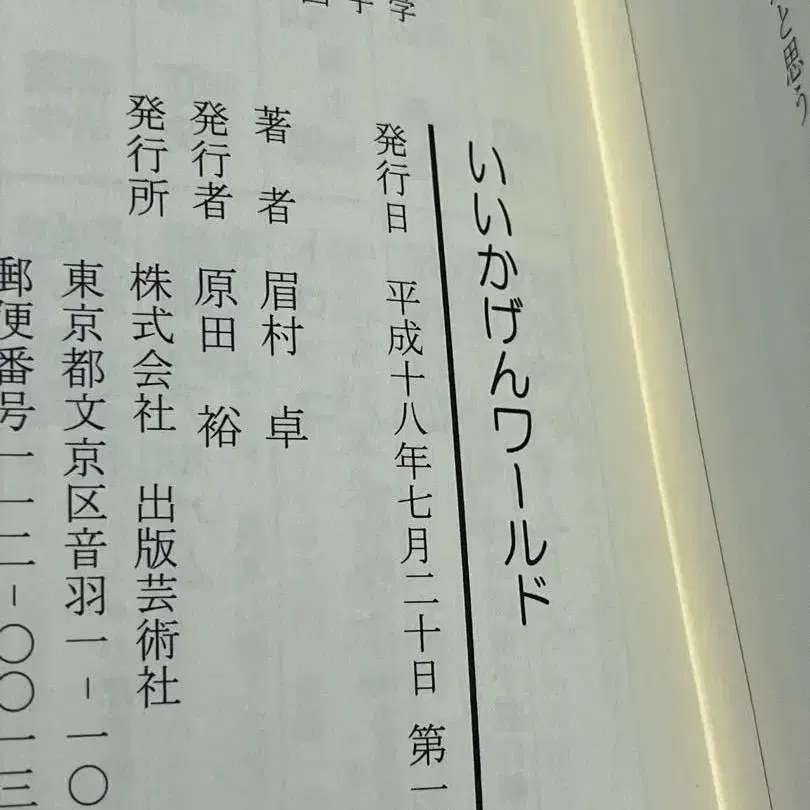 と思う
いいかげんワールド
発行日 平成十八年七月二十日 第一
著者 眉村 卓
発行者 原田 裕
発行所 株式会社 出版芸術社
東京都文京区音羽一-一〇
郵便番号一一二-〇〇一三